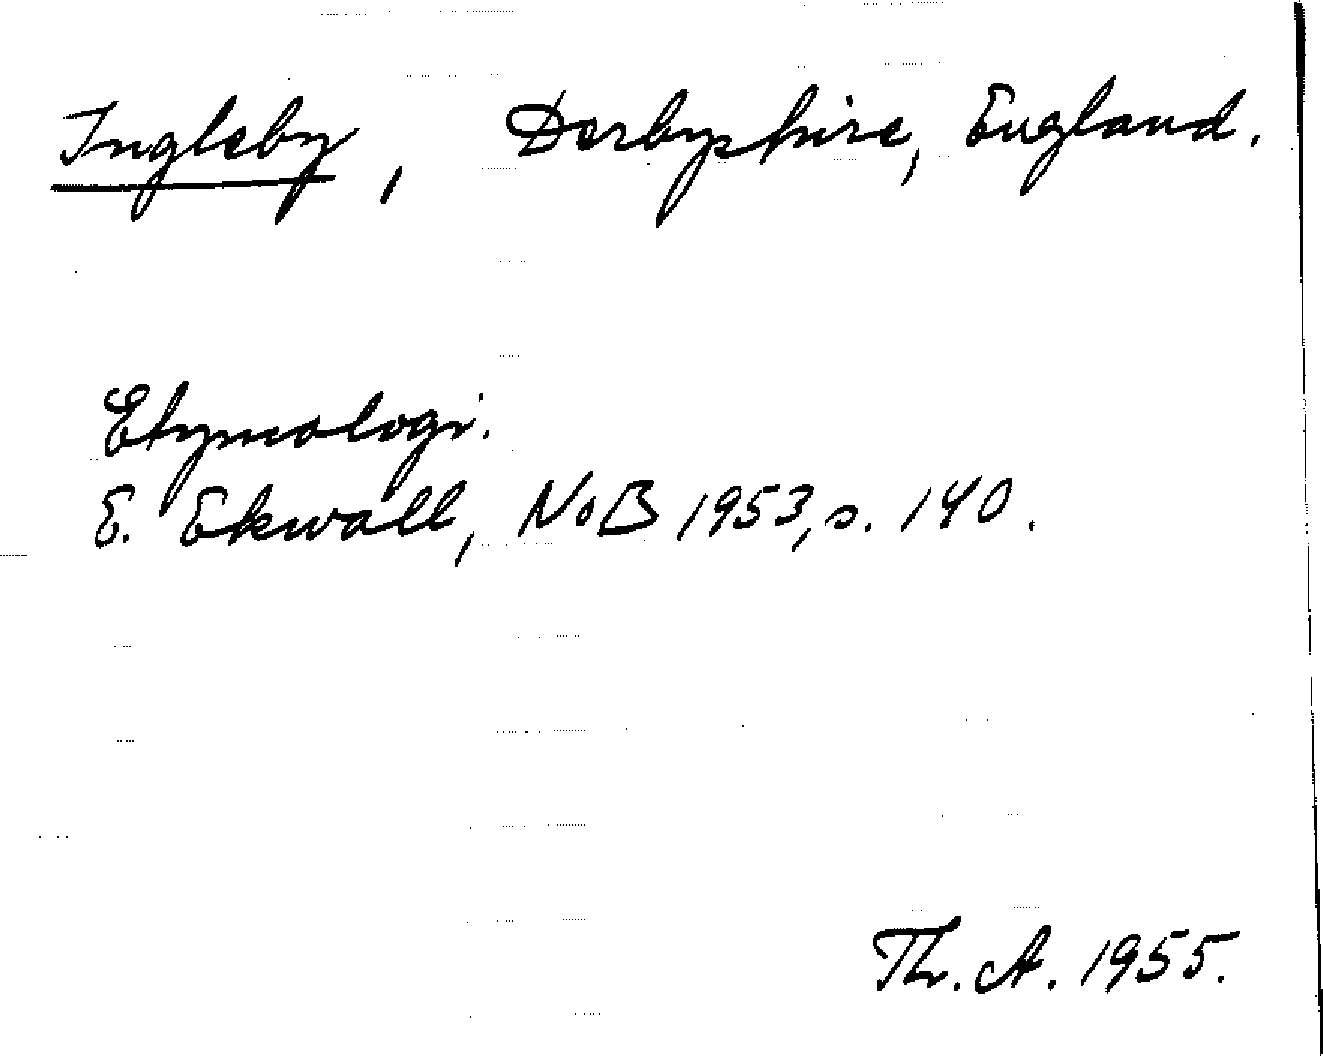 Ingleby, Derbyshire, England.
Etymologi.
E. Ekwall, NoB 1953, s. 140.
Th. A. 1955.